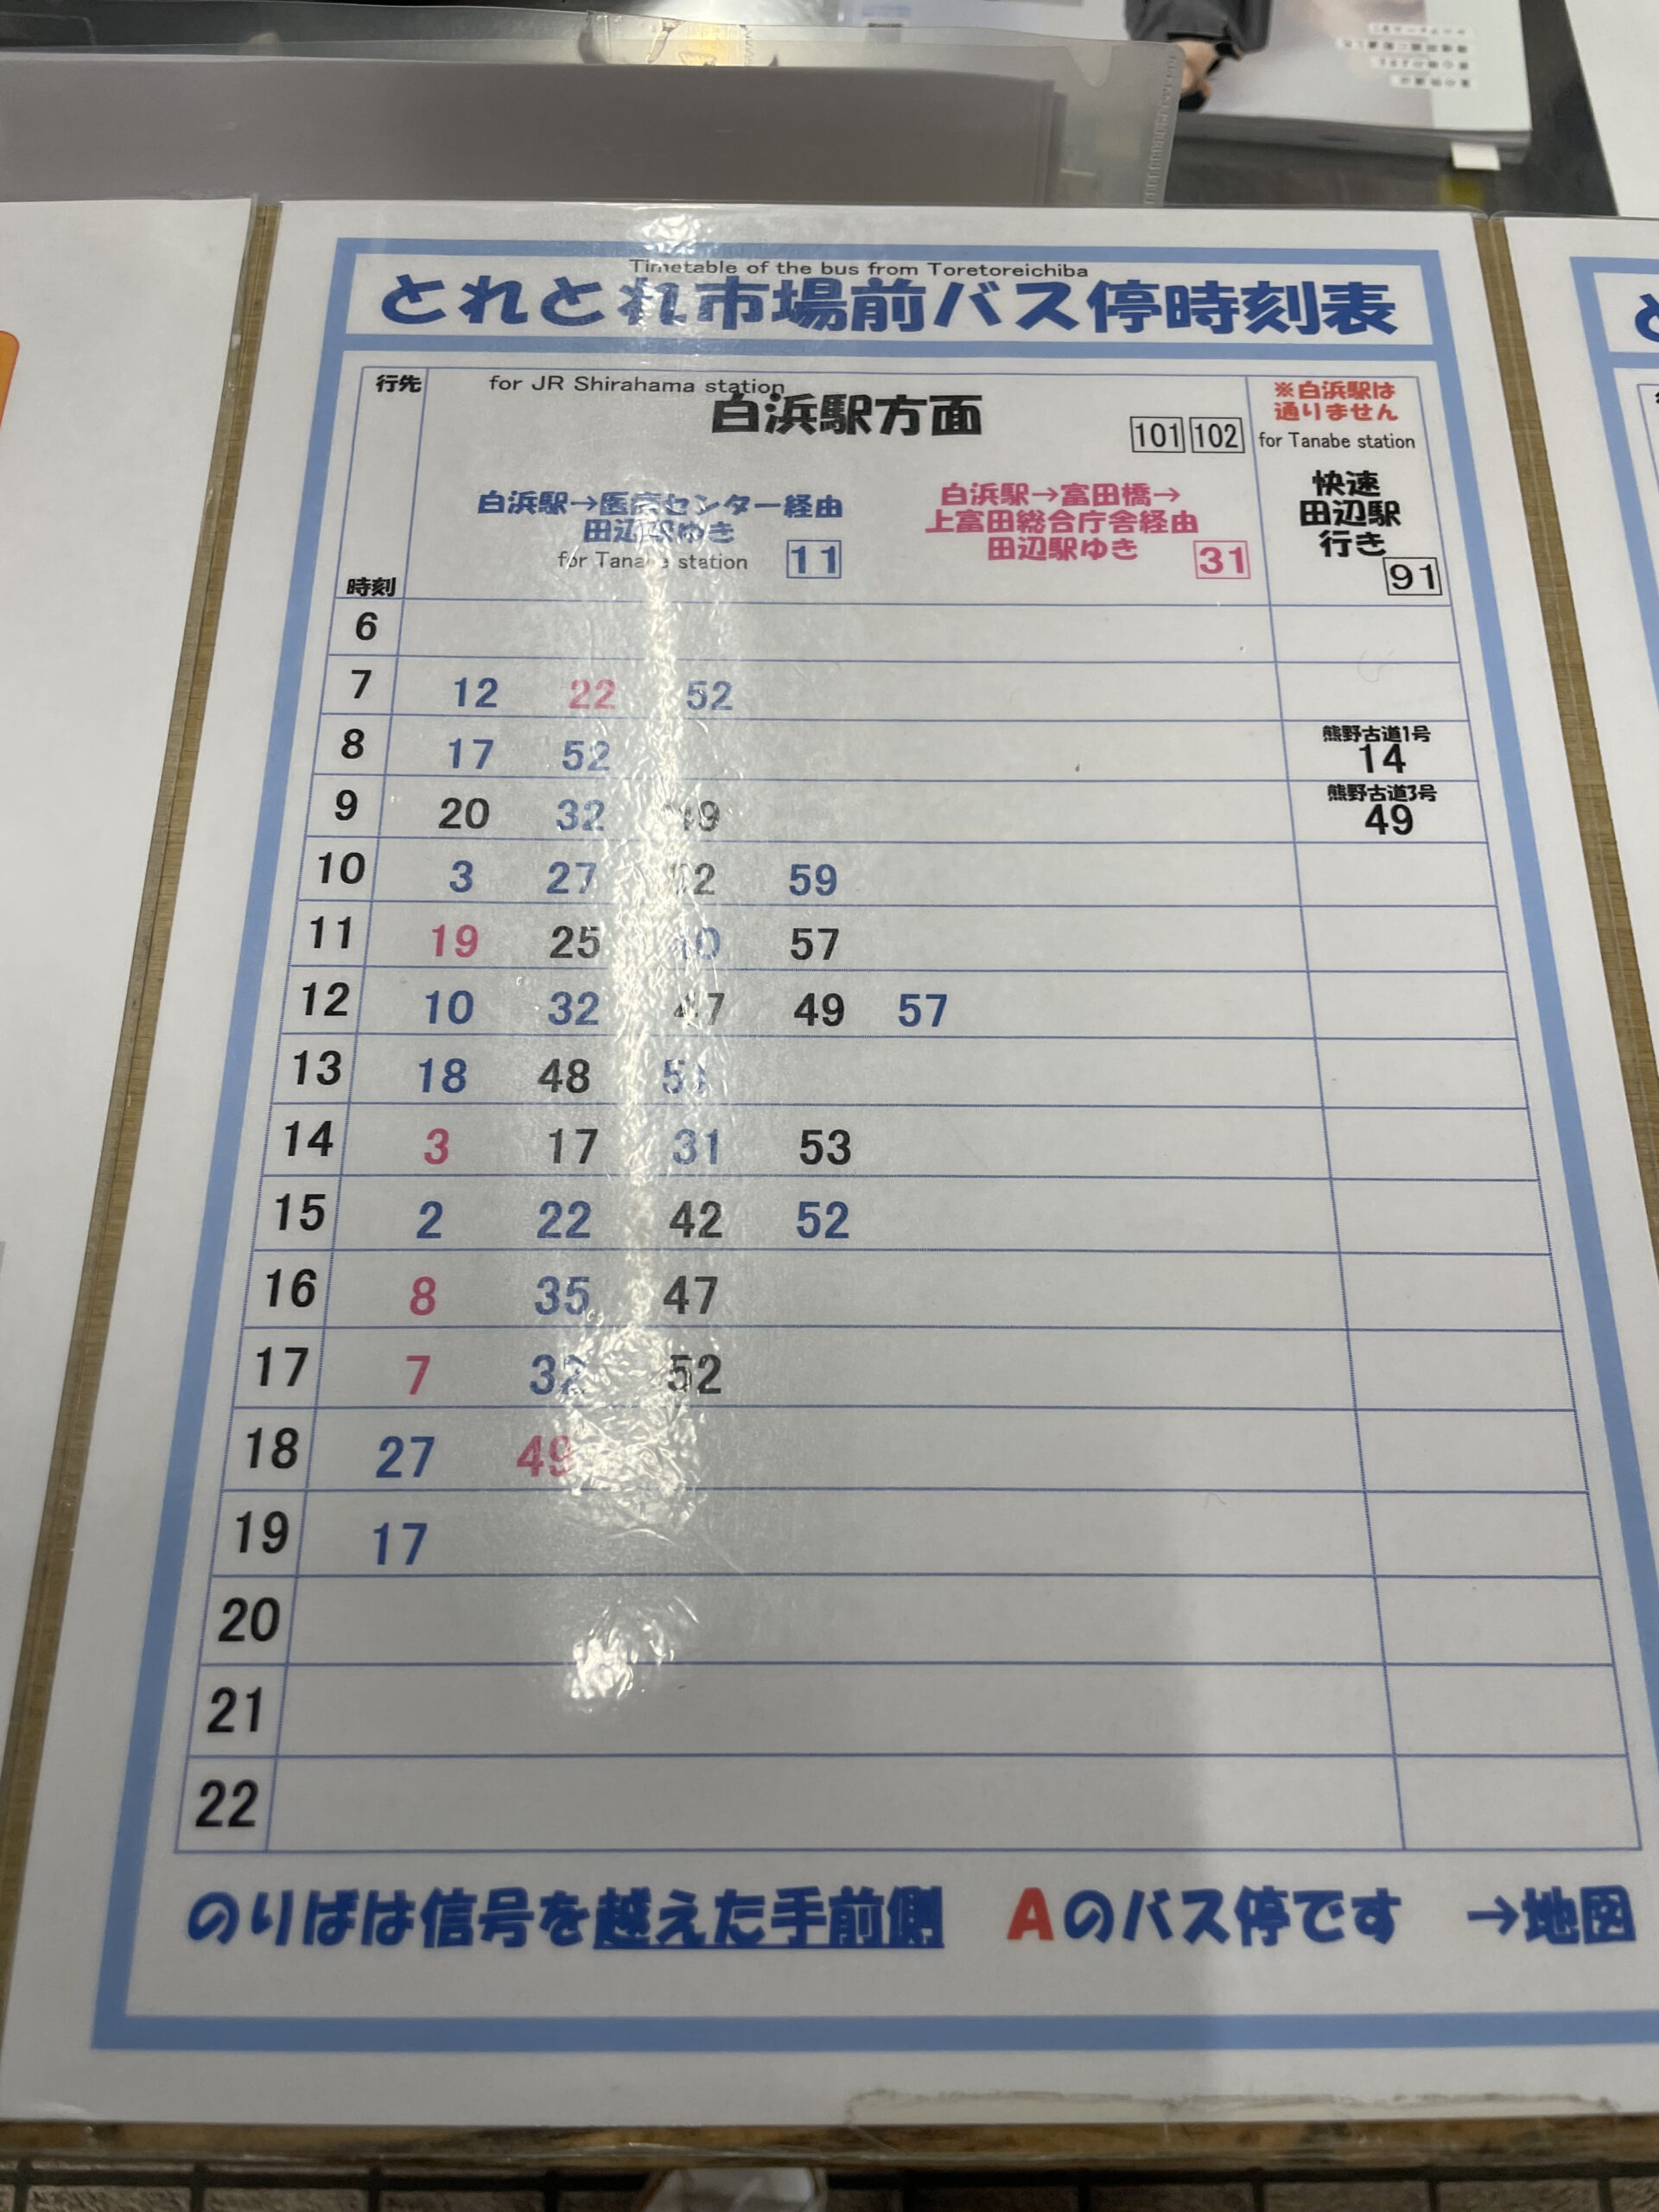 Timetable of the bus from Toretoreichiba
とれとれ市場前バス停時刻表
行先
for JR Shirahama station
白浜駅方面
101 102
白浜駅→医療センター経由
田辺駅ゆき
for Tanabe station
11
白浜駅→富田橋→
上富田総合庁舎経由
田辺駅ゆき
31
※白浜駅は
通りません
for Tanabe station
快速
田辺駅
行き
91
時刻
6
7 12 22 52
8 17 52 熊野古道1号 14
9 20 32 49 熊野古道3号 49
10 3 27 59
11 19 25 40 57
12 10 32 47 49 57
13 18 48
14 3 17 31 53
15 2 22 42 52
16 8 35 47
17 7 32 52
18 27 49
19 17
20
21
22
のりばは信号を越えた手前側 Aのバス停です →地図